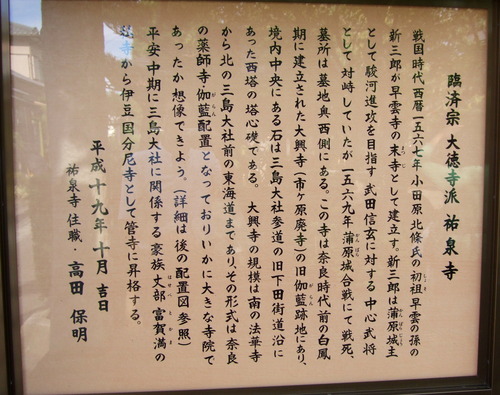 臨済宗 大徳寺派 祐泉寺
戦国時代西暦一五六七年小田原北條氏の初祖早雲の孫の
新三郎が早雲寺の末寺として建立す。新三郎は蒲原城主
として駿河進攻を目指す武田信玄に対する中心武将
として対峙していたが一五六九年蒲原城合戦にて戦死、
墓所は墓地奥西側にある。この寺は奈良時代前の白鳳
期に建立された大興寺(市ヶ原廃寺)の旧伽藍跡地にあり、
境内中央にある石は三島大社参道の旧下田街道沿に
あった西塔の塔心礎である。 大興寺の規模は南の法華寺
から北の三島大社前の東海道まであり、その形式は奈良
の薬師寺伽藍配置となっておりいかに大きな寺院で
あったか想像できよう。(詳細は後の配置図参照)
平安中期に三島大社に関係する豪族丈部富賀満の
寺から伊豆国分尼寺として官寺に昇格する。
平成十九年十月吉日
祐泉寺 住職・高田 保明